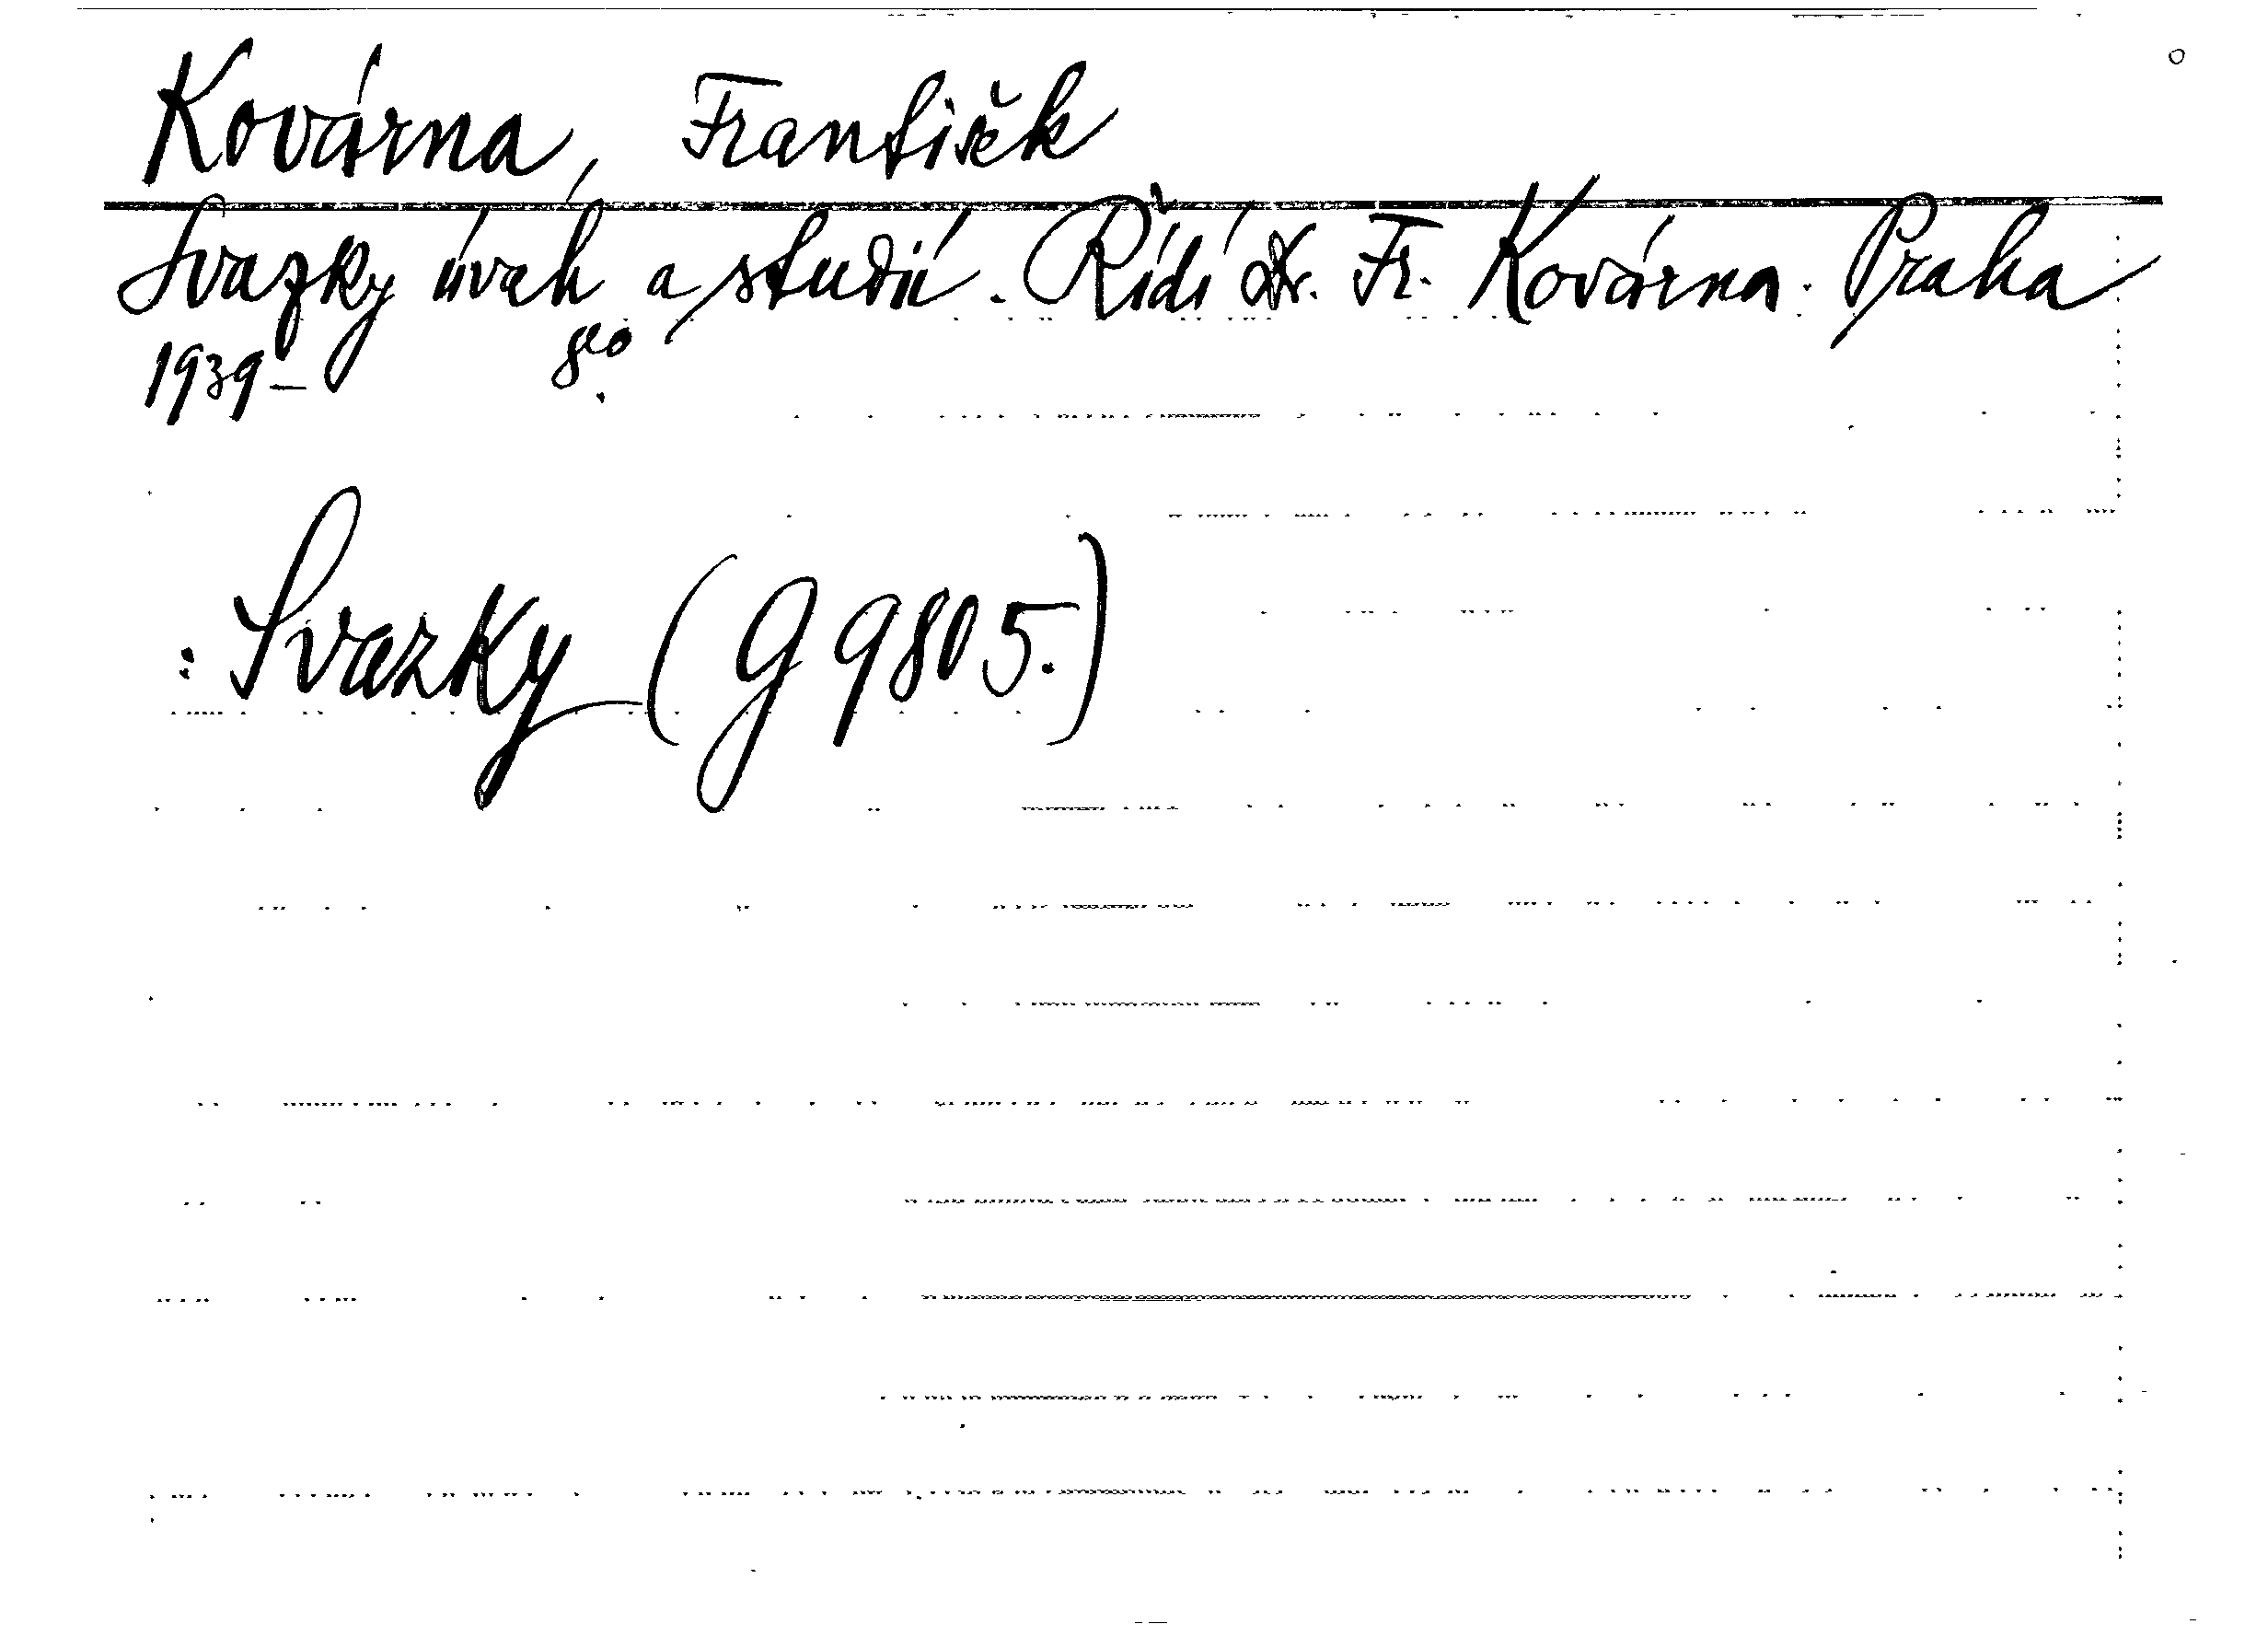 Kovárna, František
Svazky úvah a studií. Řídí Dr. Fr. Kovárna. Praha
1939- 8°.
: Svazky (G 9805.)